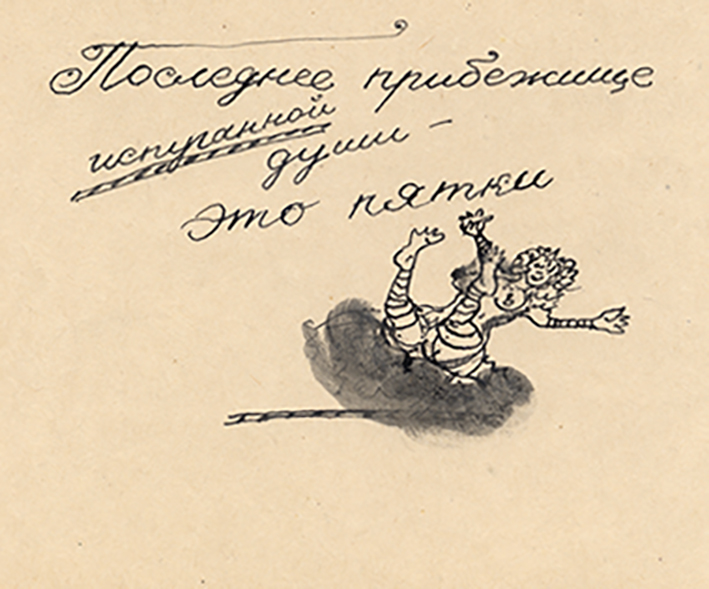 Последнее прибежище
испуганной
души —
это пятки